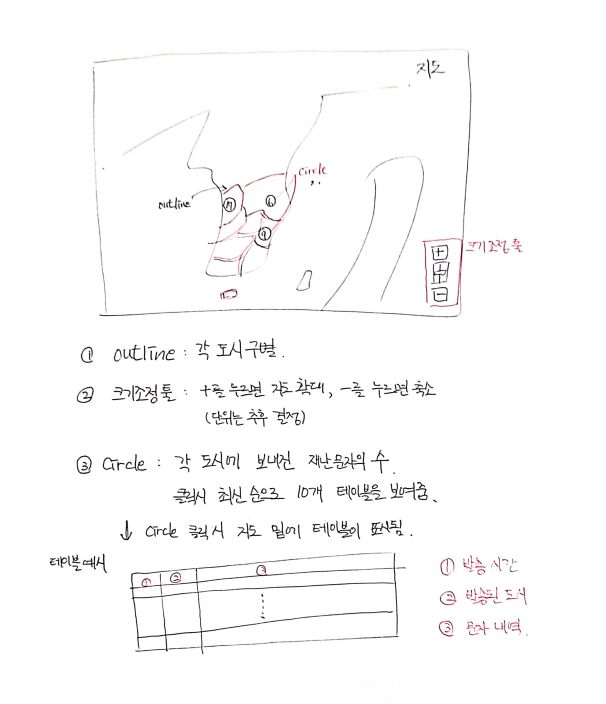 지도
circle
outline
17
6
9
크기조정 툴
+
−
① outline : 각 도시 구별.
② 크기조정 툴 : +를 누르면 지도 확대, −를 누르면 축소
(단위는 추후 결정)
③ Circle : 각 도시에 보내진 재난문자의 수.
클릭시 최신 순으로 10개 테이블을 보여줌.
↓ Circle 클릭시 지도 밑에 테이블이 표시됨.
테이블 예시
① ② ③
① 발송 시간
② 발송된 도시
③ 문자 내역.